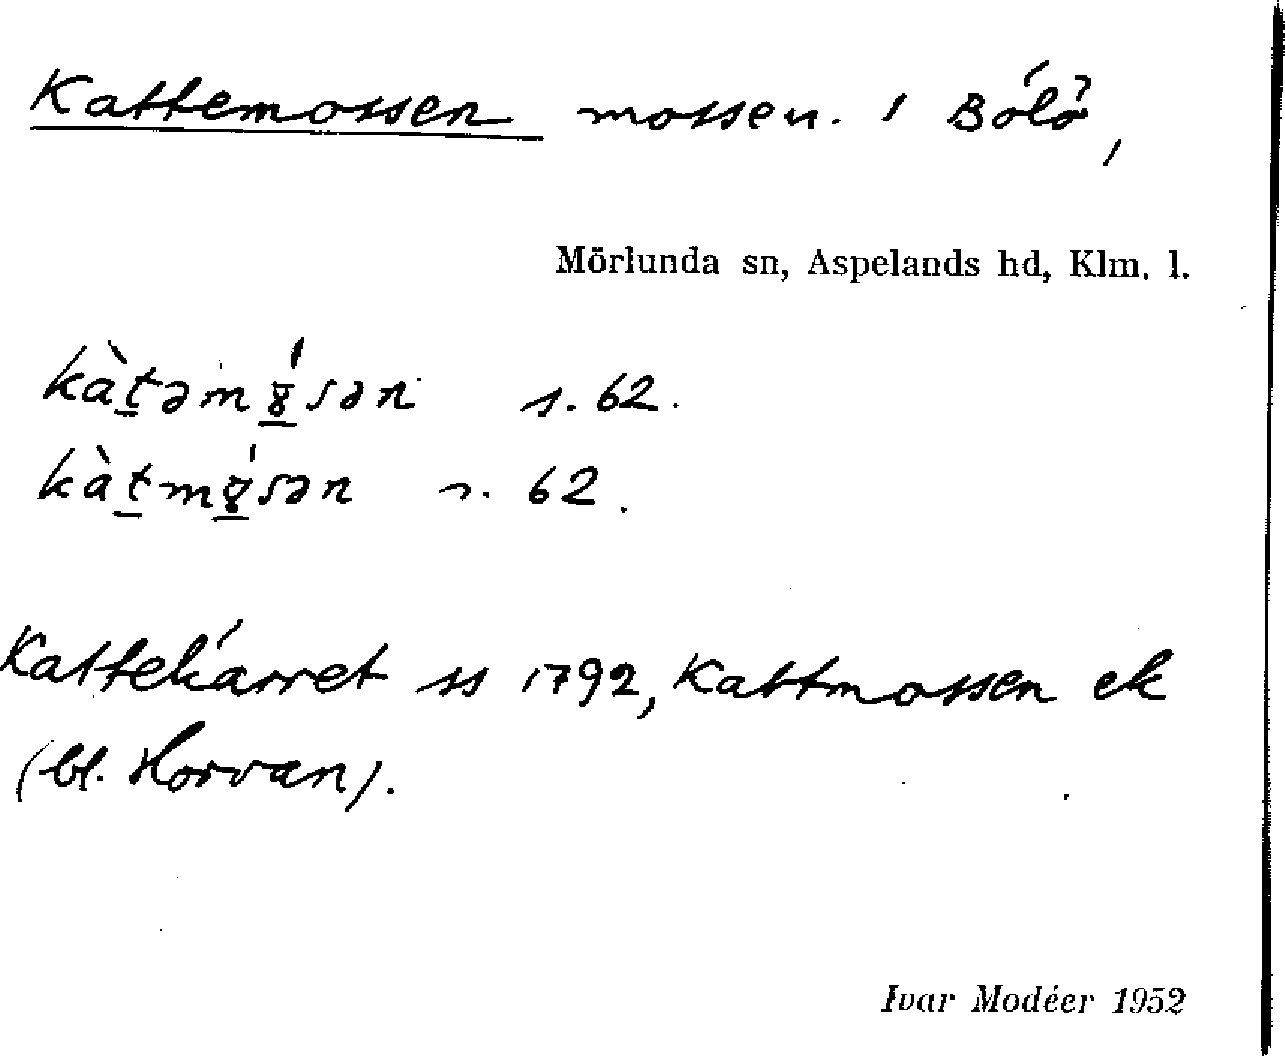 Kattemossen mossen. i Bölö,
Mörlunda sn, Aspelands hd, Klm. l.
kàt̲əmö̲́sən s. 62.
kàt̲mö̲́sən s. 62.
Kattekärret ss 1792, Kattmossen ek
(bl. Horvan).
Ivar Modéer 1952